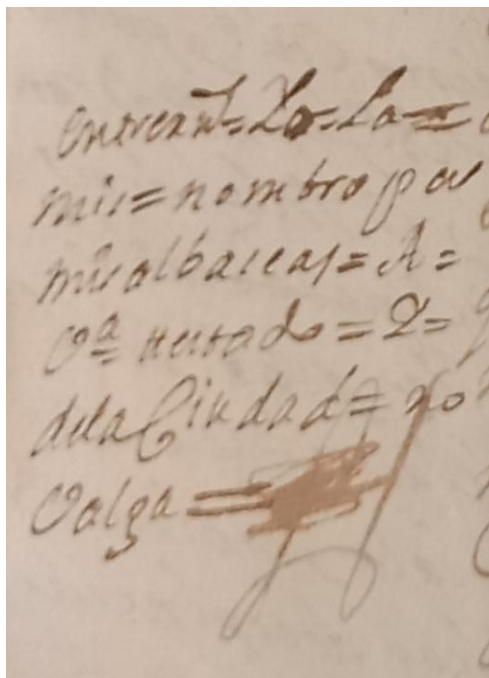 entrerrs = Lo = La =
mis = nombro por
mis albaceas = A =
Va testado = Q =
dela Ciudad = no
Valga =